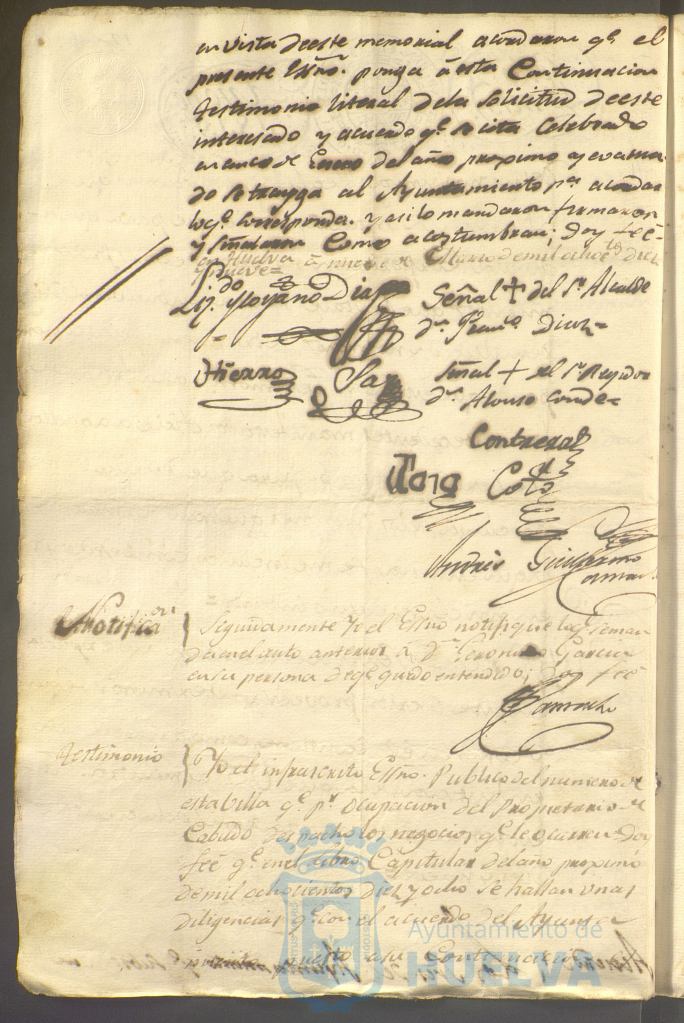 en vista de este memorial acordaron qe. el
presente Essno. ponga á esta Continuacion
testimonio literal de la solicitud de este
interesado y acuerdo qe. se cita Celebrado
en de Enero del año proximo y evacua-
do se trayga al Ayuntamiento pa. acordar
lo qe. corresponda. y asi lo mandaron firmaron
y señalaron como acostumbran; doy fee
en Huelva á nueve de Marzo de mil ochotos. diez
y nueve=
Ldo. Diaz Señal + del Sr. Alcalde
Dn. Diaz=
Hierro Saz Señal + del Sr. Regidor
Dn. Alonso Conde=
Contreras
Toro Coto
Andrés Guillermo
Camacho
Notificaon. } Seguidamente Yo el Essno notifiqué lo qe. se man
da en el auto anterior a Dn. Geronimo Garcia
en su persona de qe. quedó entendido; doy fee
Camacho
Testimonio } Yo el infrascrito Essno. Publico del numero de
esta Villa qe. pr. ocupacion del Propietario de
Cabildo despacho los negocios qe. le ocurren Doy
feé qe. en el Libro Capitular del año proximo
de mil ochocientos diez y ocho se hallan unas
diligencias qe. con el acuerdo del Ayunta
puesto a su Continuacion
Ayuntamiento de
HUELVA